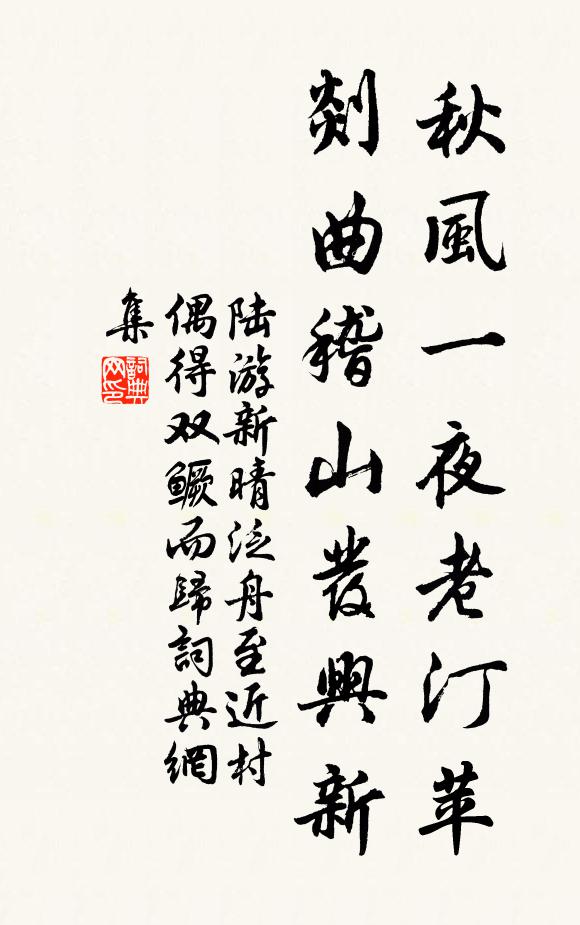 秋風一夜老汀苹
剡曲稽山發興新
陆游新晴泛舟至近村
偶得双鳜而歸詞典網
集
詞典
网印